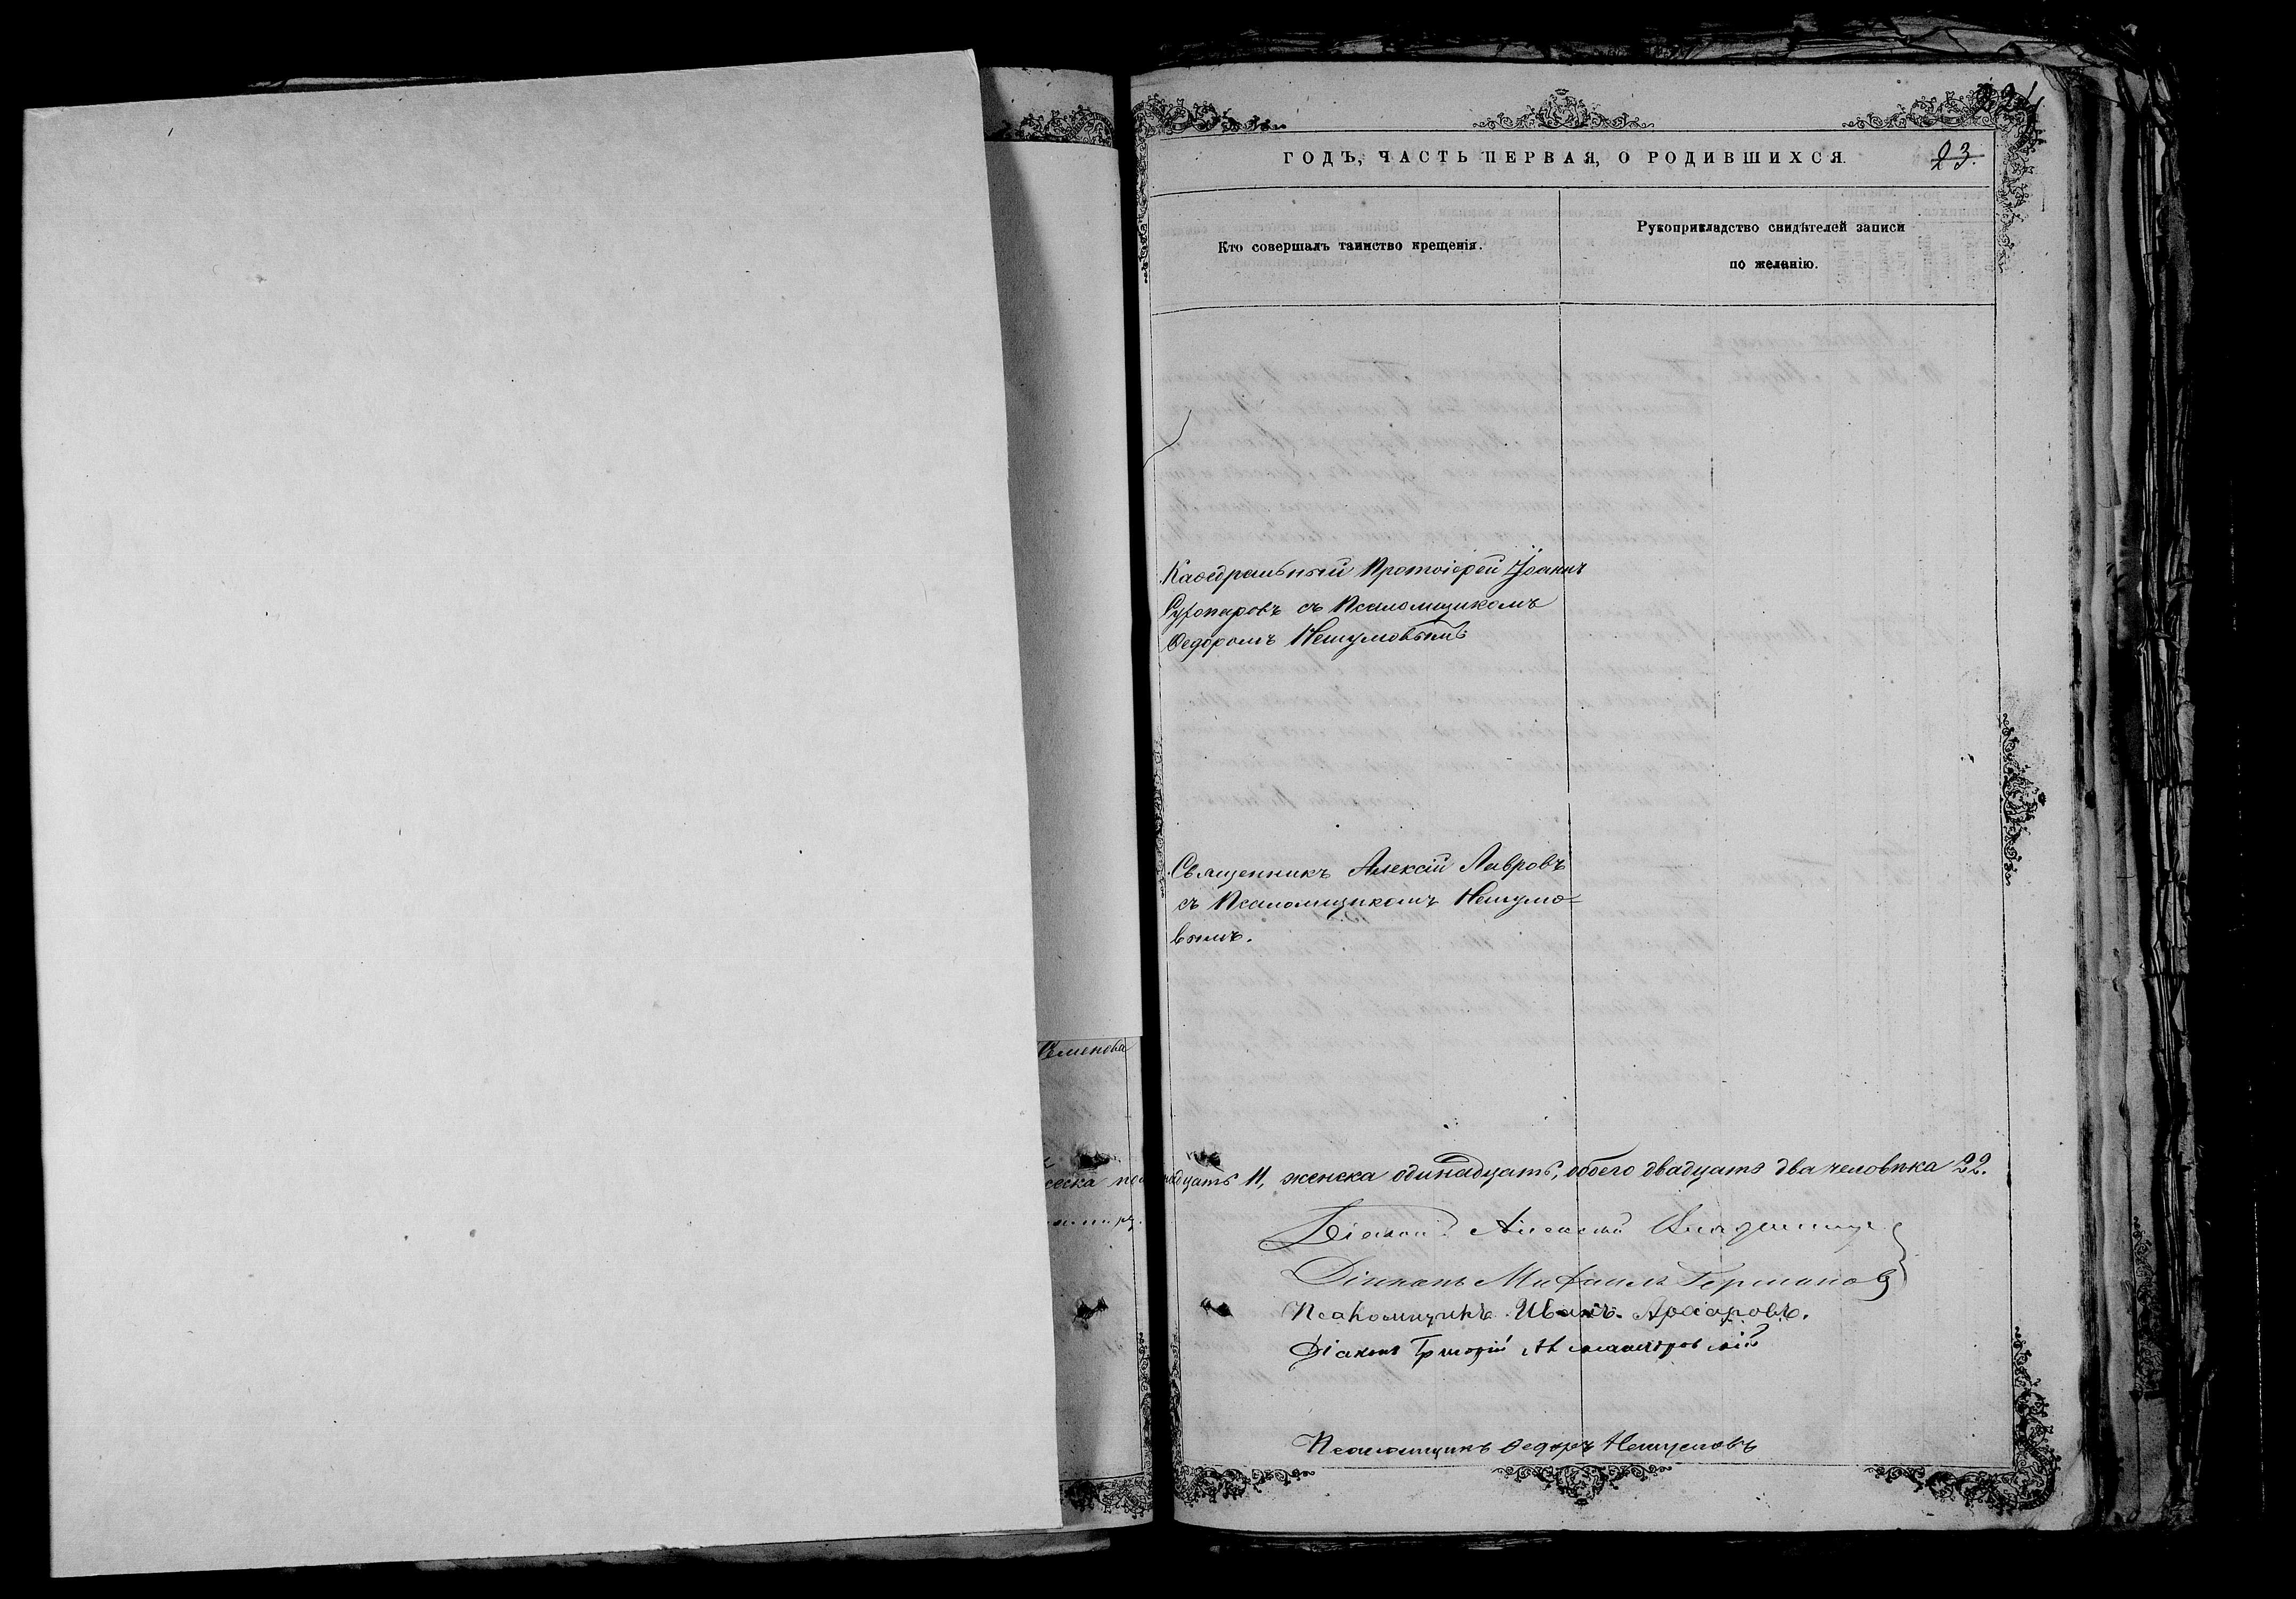 221
ГОДЪ, ЧАСТЬ ПЕРВАЯ, О РОДИВШИХСЯ.
23.
Кто совершалъ таинство крещенія.
Рукоприкладство свидѣтелей записи
по желанію.
Каѳедральный Протоіерей Іоаннъ
съ Псаломщикомъ
Ѳедоромъ Нешумовымъ
Священникъ Алексій Лавровъ
съ Псаломщикомъ Нешумо=
вымъ.
надцать 11, женска одинадцать, обоего двадцать два человѣка 22.
Діаконъ Алексій
Діаконъ Михаилъ Германовъ
Псаломщикъ Иванъ Архаровъ.
Діаконъ Григорій
Псаломщикъ Ѳедоръ Нешумовъ